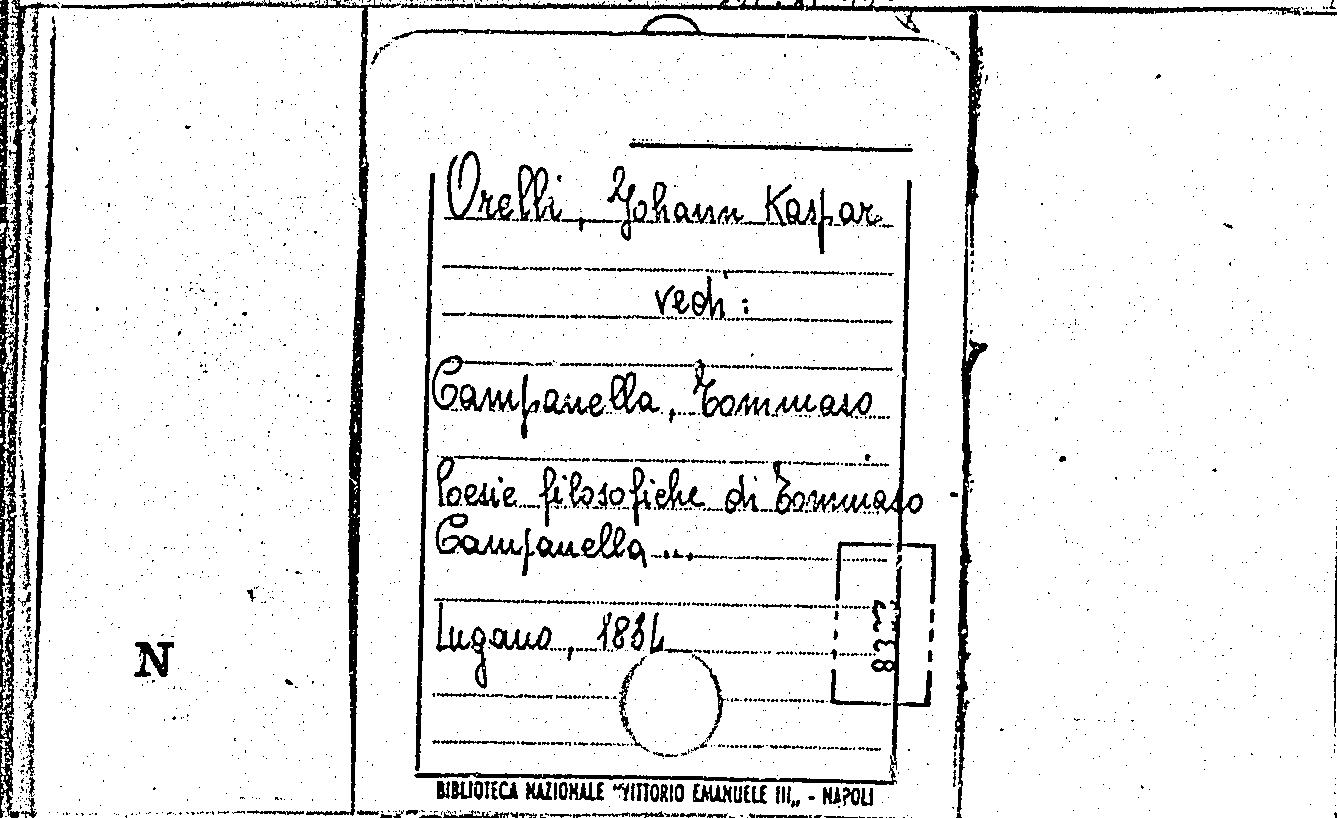 Orelli, Johann Kaspar
vedi:
Campanella, Tommaso
Poesie filosofiche di Tommaso
Campanella...
Lugano, 1834
833
N
BIBLIOTECA NAZIONALE "VITTORIO EMANUELE III„ - NAPOLI